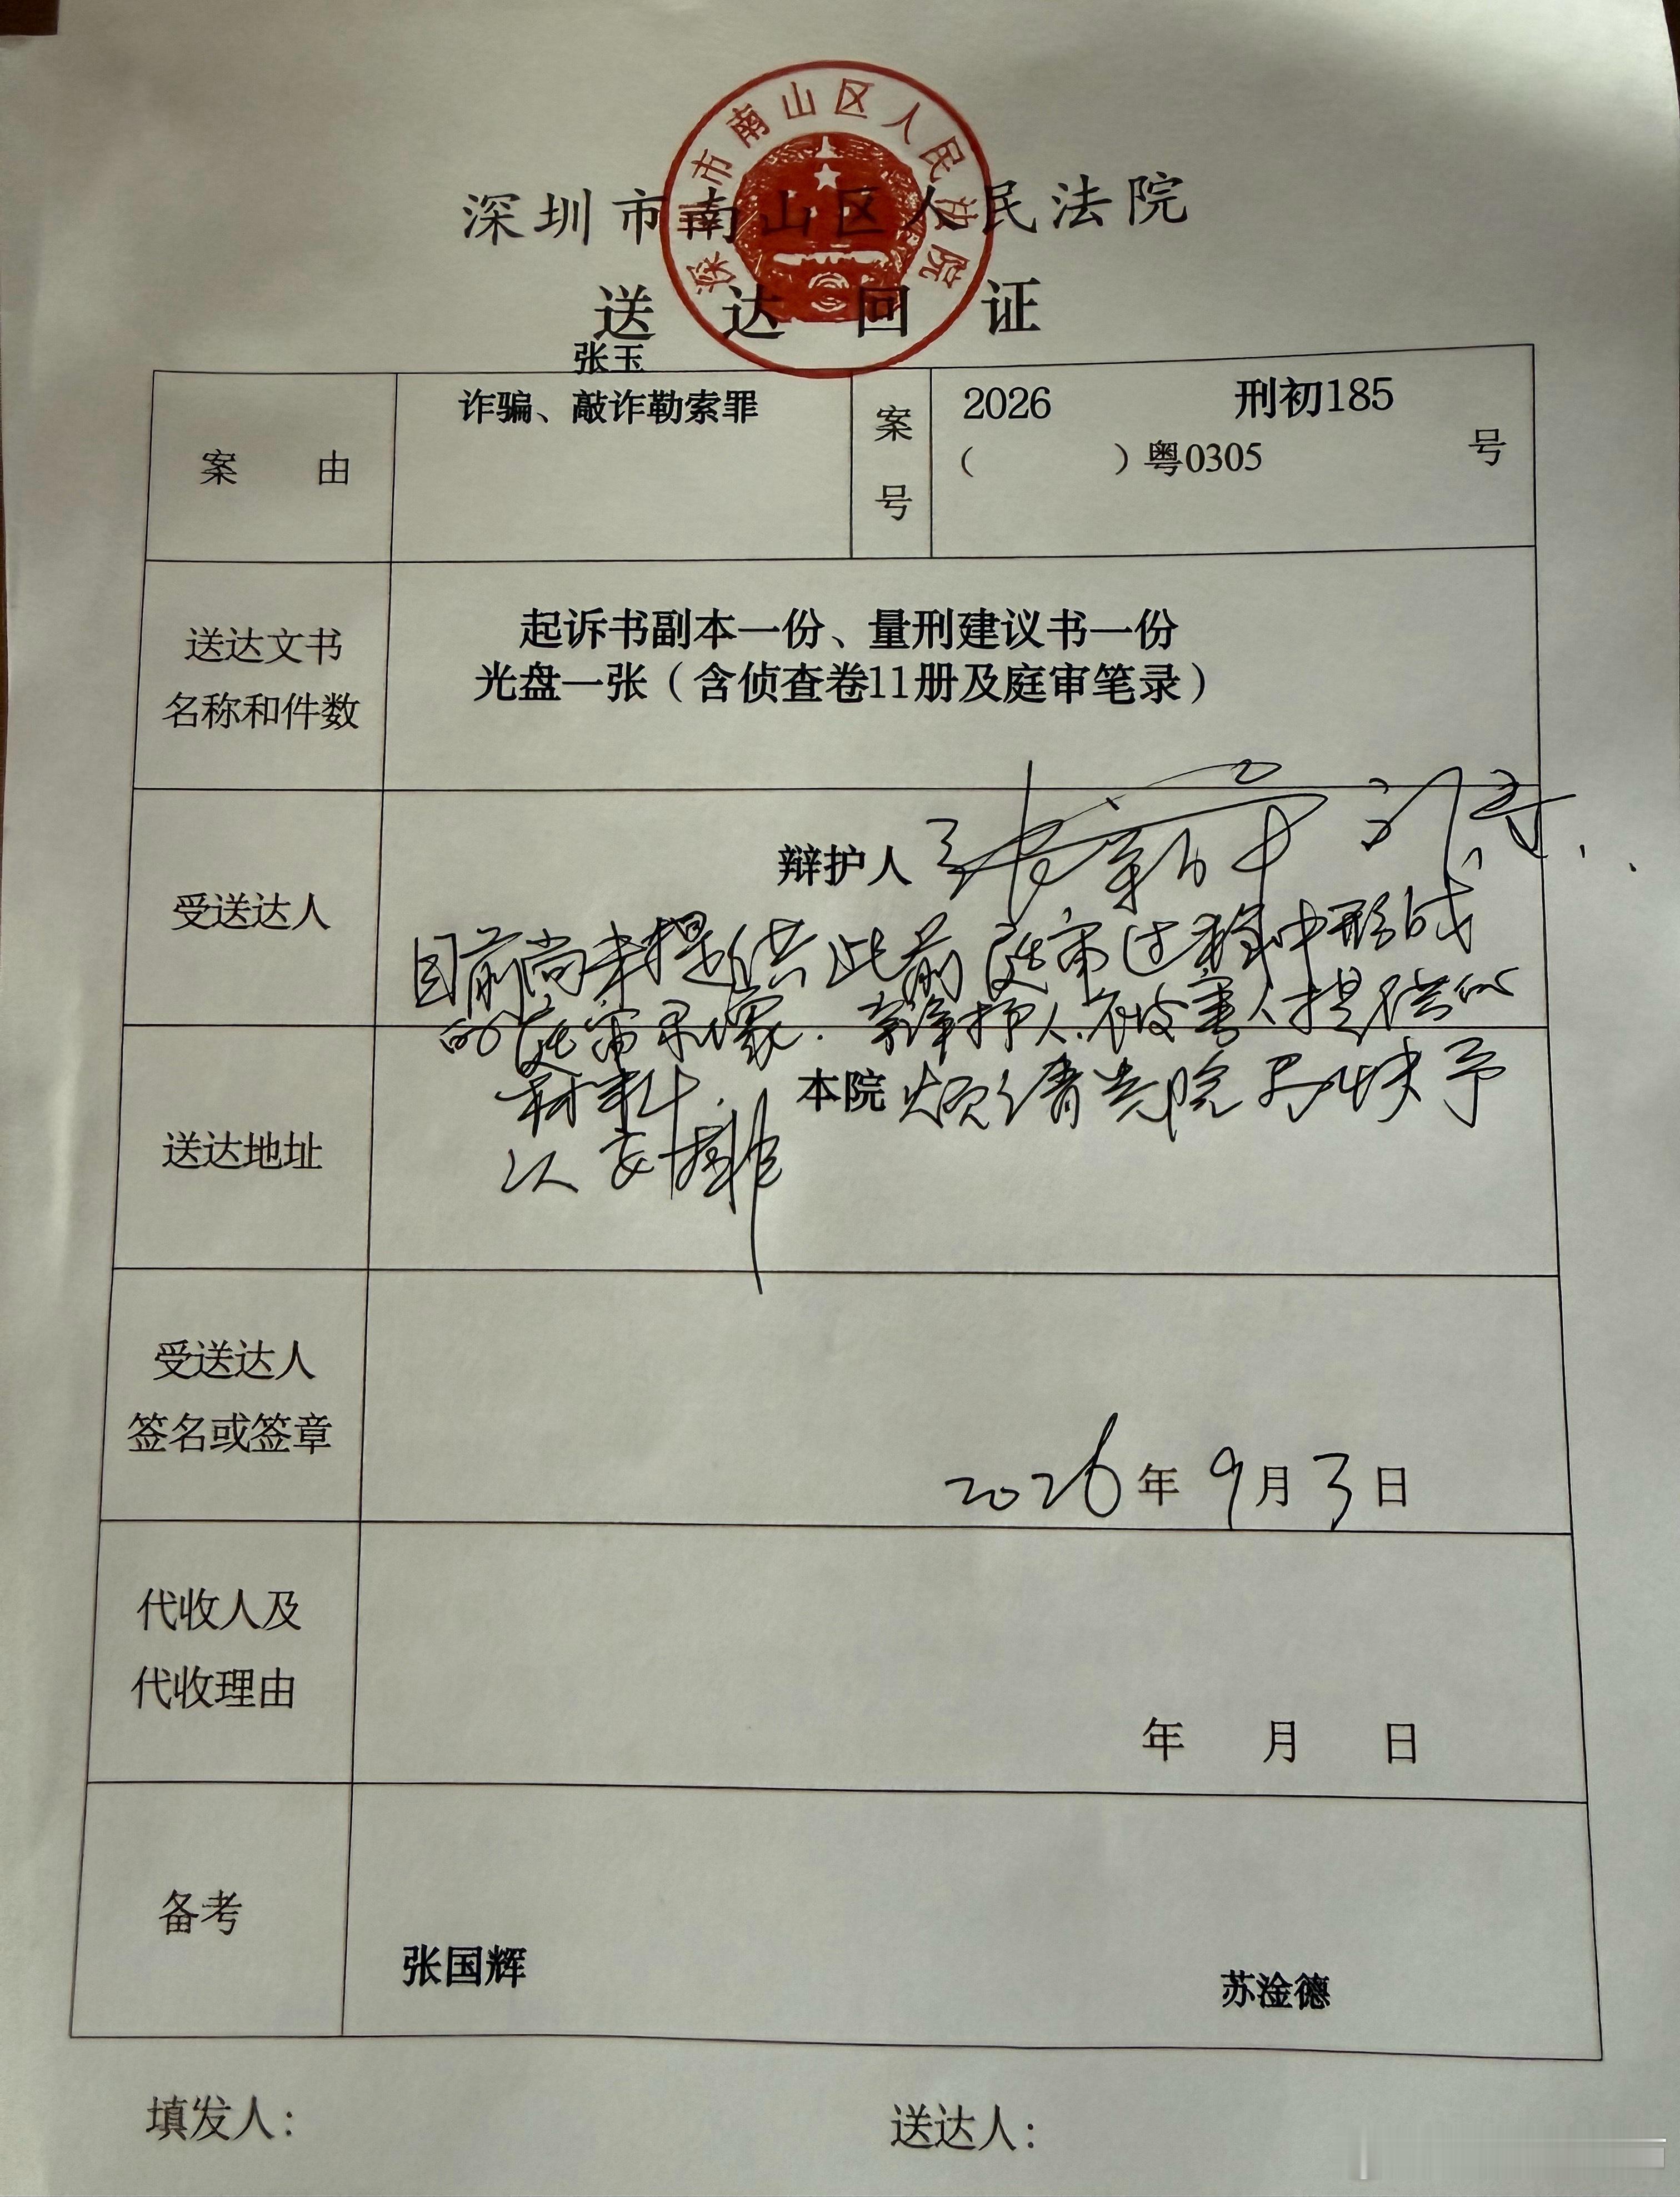 深圳市南山区人民法院
深圳市南山区人民法院
送达回证
张玉
诈骗、敲诈勒索罪
案由
案号
2026 刑初185
（ ）粤0305 号
送达文书
名称和件数
起诉书副本一份、量刑建议书一份
光盘一张（含侦查卷11册及庭审笔录）
受送达人
辩护人
目前尚未提供此前庭审过程中形成
的庭审录像、辩护人、被害人提供的
材料.
送达地址
本院 烦请贵院尽快予
以安排
受送达人
签名或签章
2026年9月3日
代收人及
代收理由
年 月 日
备考
张国辉
苏淦德
填发人：
送达人：